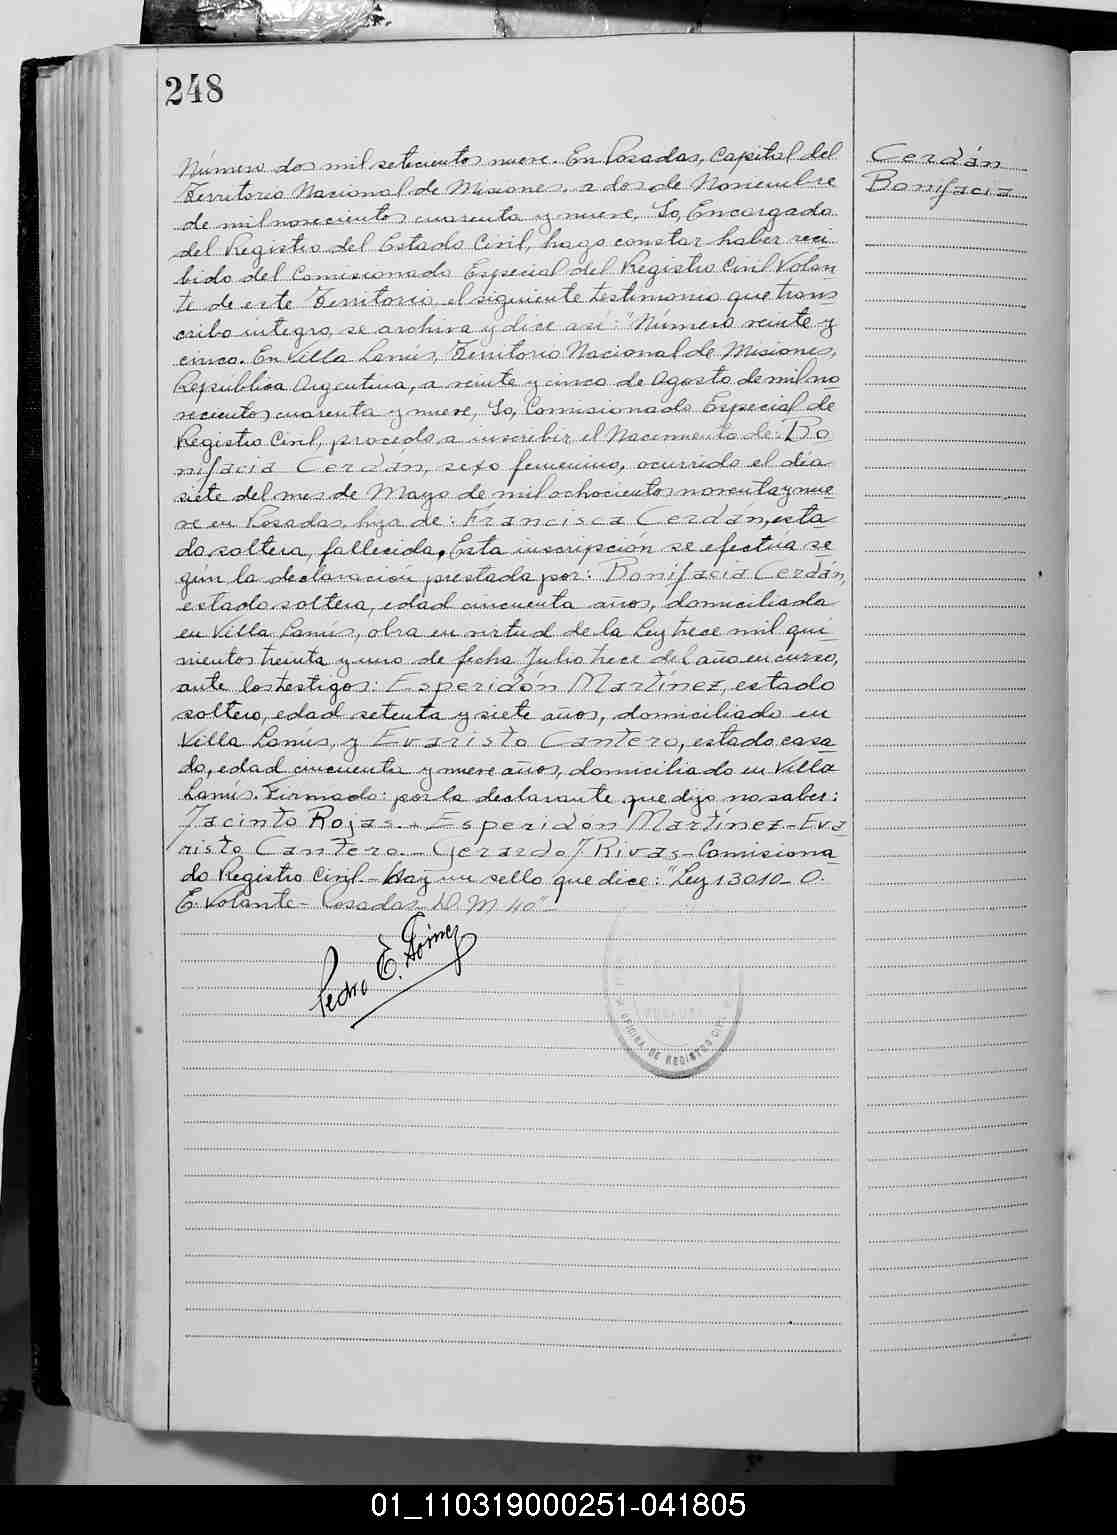 248
Número dos mil setecientos nueve. En Posadas, Capital del
Territorio Nacional de Misiones, a dos de Noviembre
de mil novecientos cuarenta y nueve, Yo, Encargado
del Registro del Estado Civil, hago constar haber reci
bido del Comisionado Especial del Registro Civil Volan
te de este Territorio, el siguiente testimonio que trans
cribo íntegro, se archiva y dice así: "Número veinte y
cinco. En Villa Lanús, Territorio Nacional de Misiones,
República Argentina, a veinte y cinco de Agosto de mil no
vecientos cuarenta y nueve, Yo, Comisionado Especial de
Registro Civil, procedo a inscribir el Nacimiento de: Bo
nifacia Cerdán, sexo femenino, ocurrido el día
siete del mes de Mayo de mil ochocientos noventa y nue
ve en Posadas, hija de: Francisca Cerdán, esta
do soltera, fallecida. Esta inscripción se efectúa se
gún la declaración prestada por: Bonifacia Cerdán,
estado soltera, edad cincuenta años, domiciliada
en Villa Lanús, obra en virtud de la Ley trece mil qui
nientos treinta y uno de fecha Julio trece del año en curso,
ante los testigos: Esperidón Martínez, estado
soltero, edad setenta y siete años, domiciliado en
Villa Lanús, y Evaristo Cantero, estado casa
do, edad cincuenta y nueve años, domiciliado en Villa
Lanús. Firmado: por la declarante que dijo no saber:
Jacinto Rojas.- Esperidón Martínez - Eva
risto Cantero.- Gerardo J Rivas - Comisiona
do Registro Civil - Hay un sello que dice: "Ley 13010 - O.
E. Volante - Posadas - D. M. 40" -
Pedro E. Gómez
OFICINA DE REGISTRO CIVIL
Cerdán
Bonifacia
01_110319000251-041805